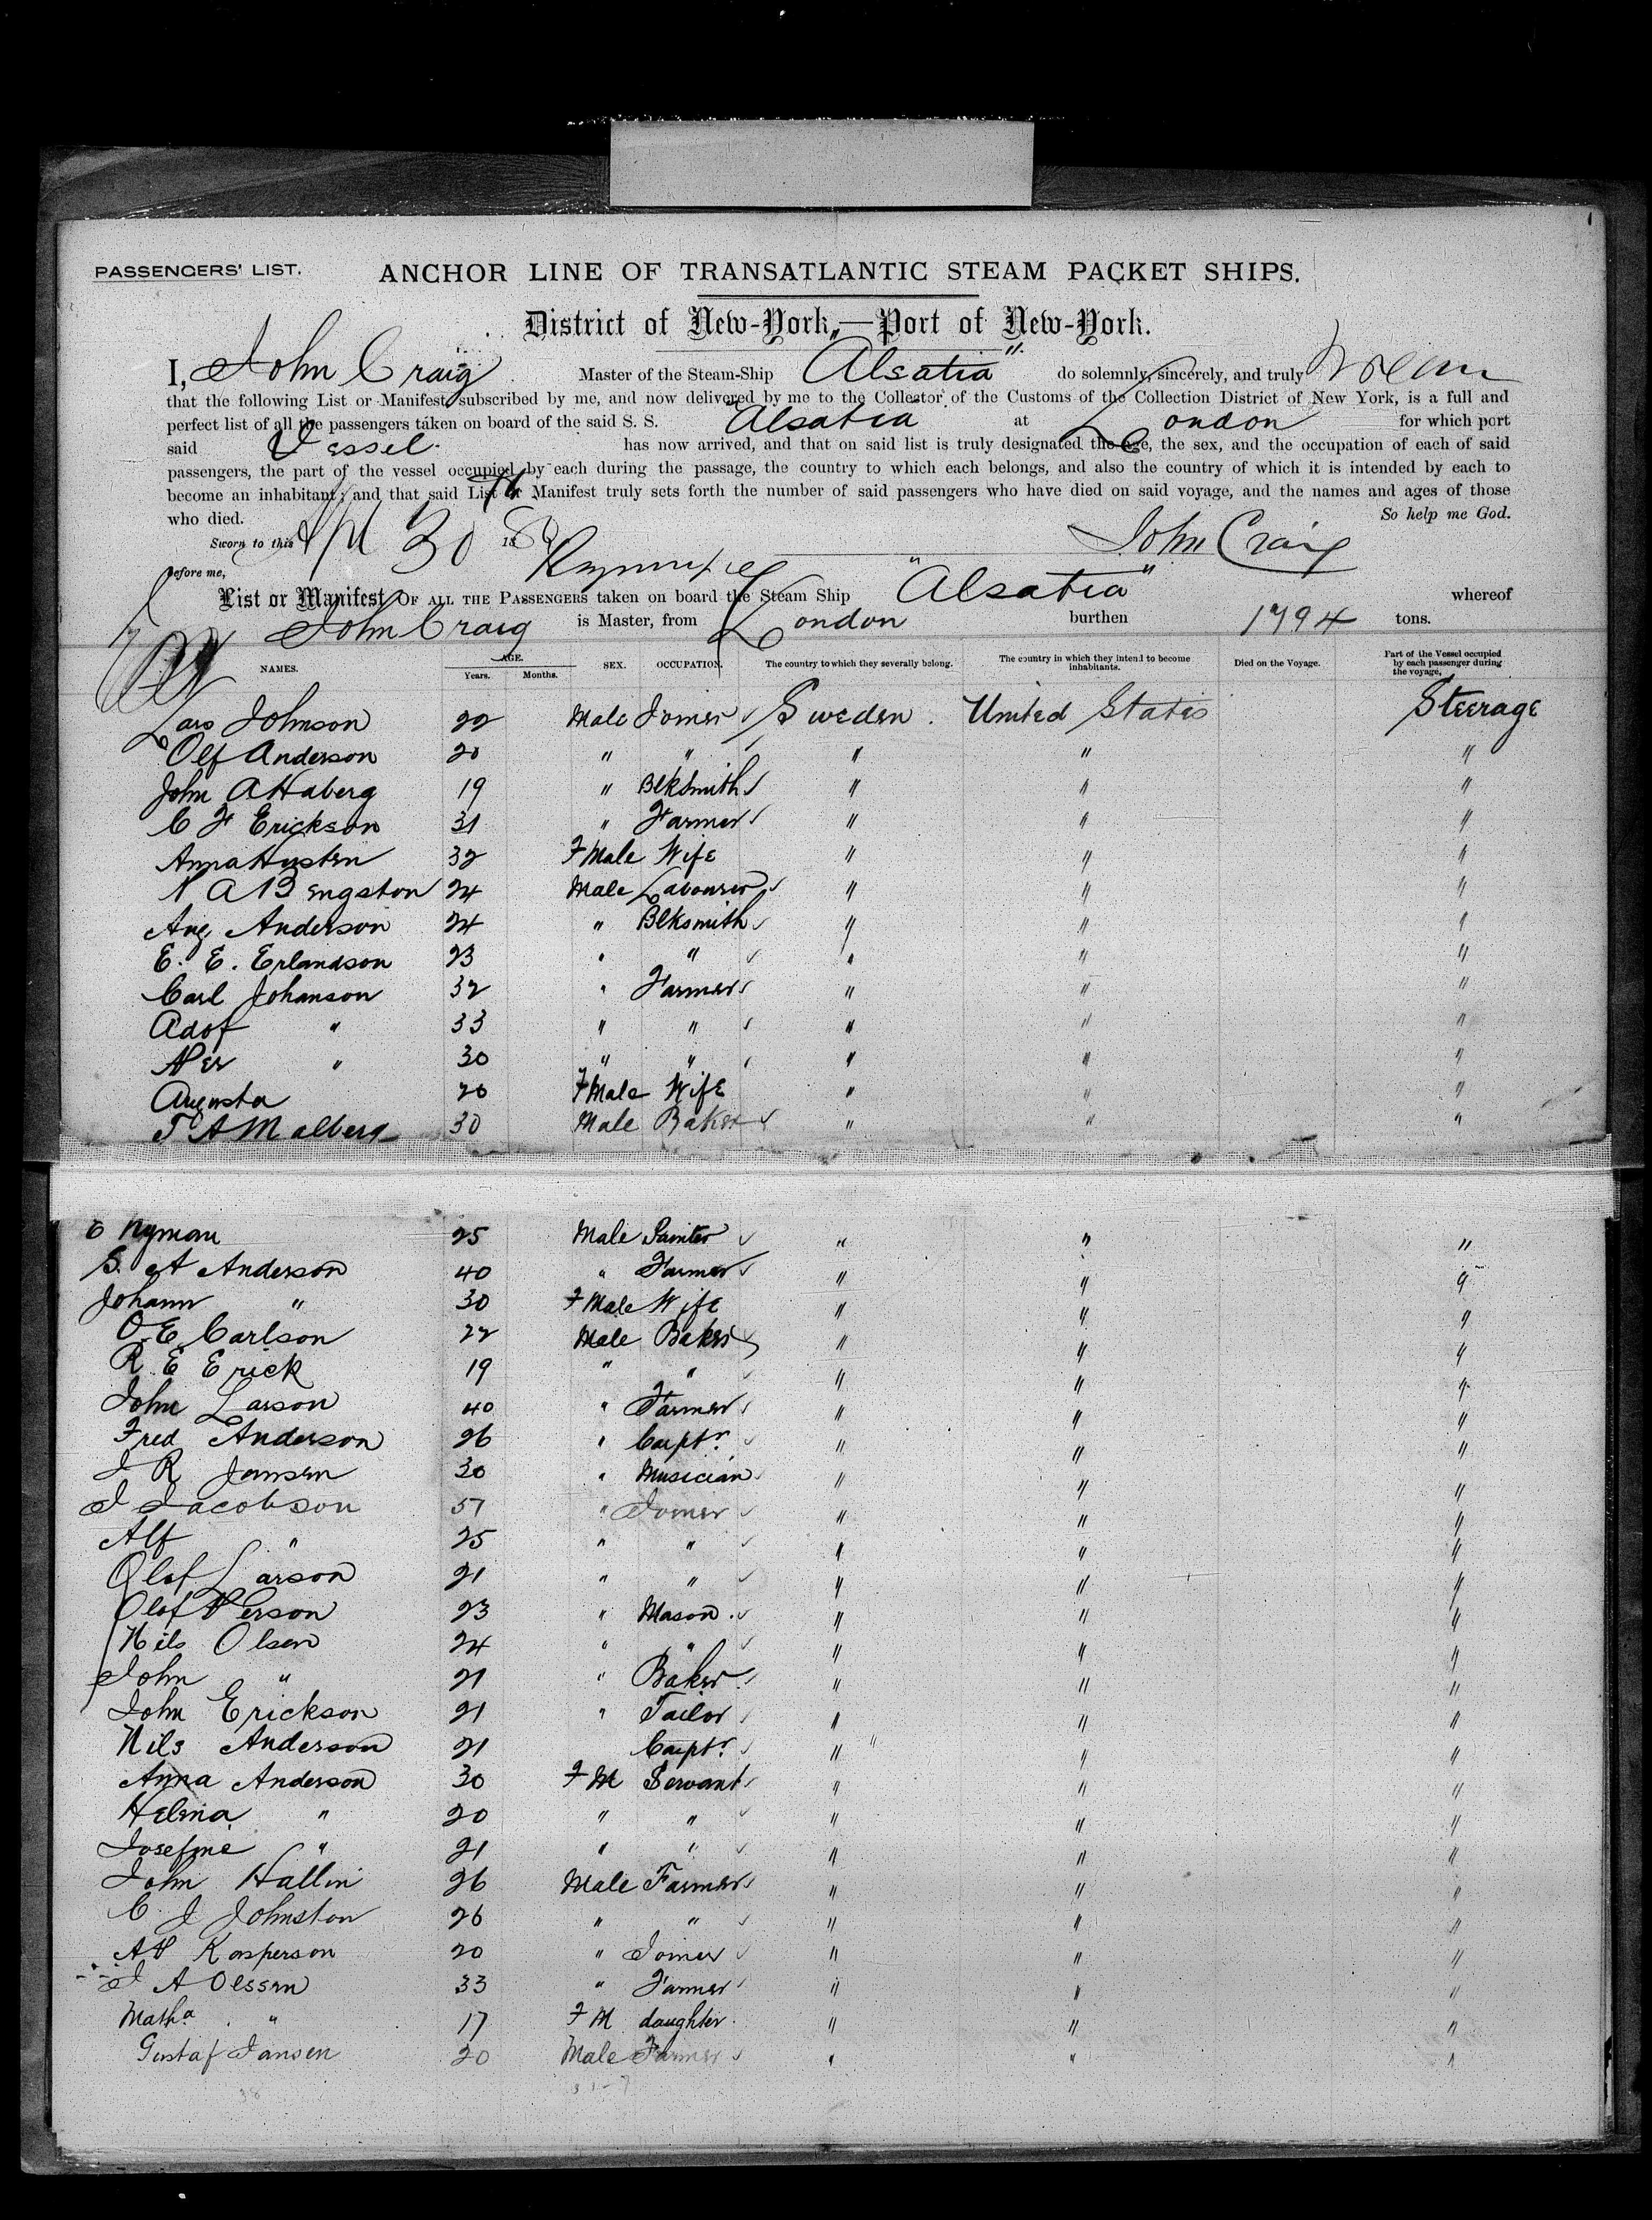 PASSENGERS' LIST.
ANCHOR LINE OF TRANSATLANTIC STEAM PACKET SHIPS.
District of New-York,—Port of New-York.
I, John Craig Master of the Steam-Ship "Alsatia" do solemnly, sincerely, and truly swear
that the following List or Manifest subscribed by me, and now delivered by me to the Collector of the Customs of the Collection District of New York, is a full and
perfect list of all the passengers taken on board of the said S. S. Alsatia at London for which port
said Vessel has now arrived, and that on said list is truly designated the age, the sex, and the occupation of each of said
passengers, the part of the vessel occupied by each during the passage, the country to which each belongs, and also the country of which it is intended by each to
become an inhabitant; and that said List or Manifest truly sets forth the number of said passengers who have died on said voyage, and the names and ages of those
who died. So help me God.
Sworn to this Apl 30 1880 John Craig
before me,
List or Manifest OF ALL THE PASSENGERS taken on board the Steam Ship "Alsatia" whereof
John Craig is Master, from London burthen 1794 tons.
NAMES. AGE. Years. Months. SEX. OCCUPATION. The country to which they severally belong. The country in which they intend to become inhabitants. Died on the Voyage. Part of the Vessel occupied by each passenger during the voyage.
Lars Johnson 22 Male Joiner Sweden. United States Steerage
Olf Anderson 20 " " " " "
John A Haberg 19 " Blksmith " " "
C F Erickson 31 " Farmer " " "
Anna Hysten 32 F Male Wife " " "
N A Bengston 24 Male Labourer " " "
Aug Anderson 24 " Blksmith " " "
E. E. Erlandson 23 " " " " "
Carl Johanson 32 " Farmer " " "
Adof " 33 " " " " "
Per " 30 " " " " "
Augusta 20 F Male Wife " " "
T A Malberg 30 Male Baker " " "
C Nyman 25 Male Painter " " "
S. A Anderson 40 " Farmer " " "
Johann " 30 F Male Wife " " "
O E Carlson 22 Male Baker " " "
R E Erick 19 " " " " "
John Larson 40 " Farmer " " "
Fred Anderson 26 " Carptr. " " "
J R Jansen 30 " Musician " " "
J Jacobson 51 " Joiner " " "
Alf " 25 " " " " "
Olof Larson 21 " " " " "
Olof Person 23 " Mason. " " "
Nils Olsen 24 " " " " "
John " 21 " Baker " " "
John Erickson 21 " Tailor " " "
Nils Anderson 21 Carptr. " " " "
Anna Anderson 30 F M Servant " " "
Helma " 20 " " " " "
Josefine " 21 " " " " "
John Hallin 26 Male Farmer " " "
C J Johnston 26 " " " " "
A P Kasperson 20 " Joiner " " "
J A Olssen 33 " Farmer " " "
Matha " 17 F M daughter. " " "
Gustaf Jansen 20 Male Farmer " " "
38 31-7